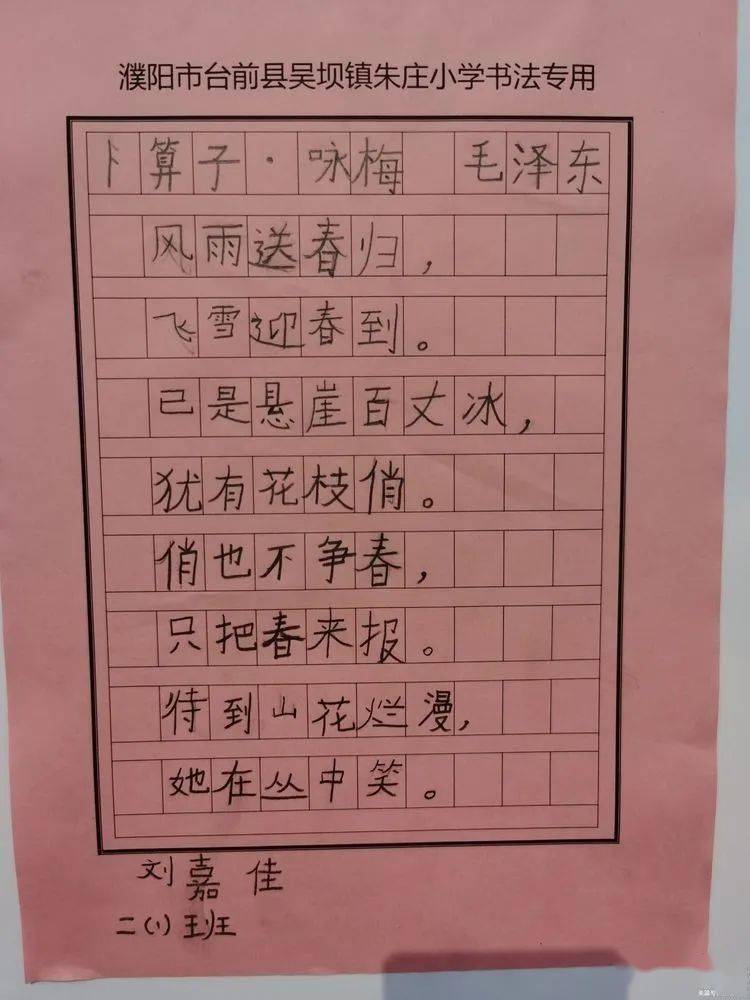 濮阳市台前县吴坝镇朱庄小学书法专用
卜算子·咏梅 毛泽东
风雨送春归，
飞雪迎春到。
已是悬崖百丈冰，
犹有花枝俏。
俏也不争春，
只把春来报。
待到山花烂漫，
她在丛中笑。
刘嘉佳
二(1)班